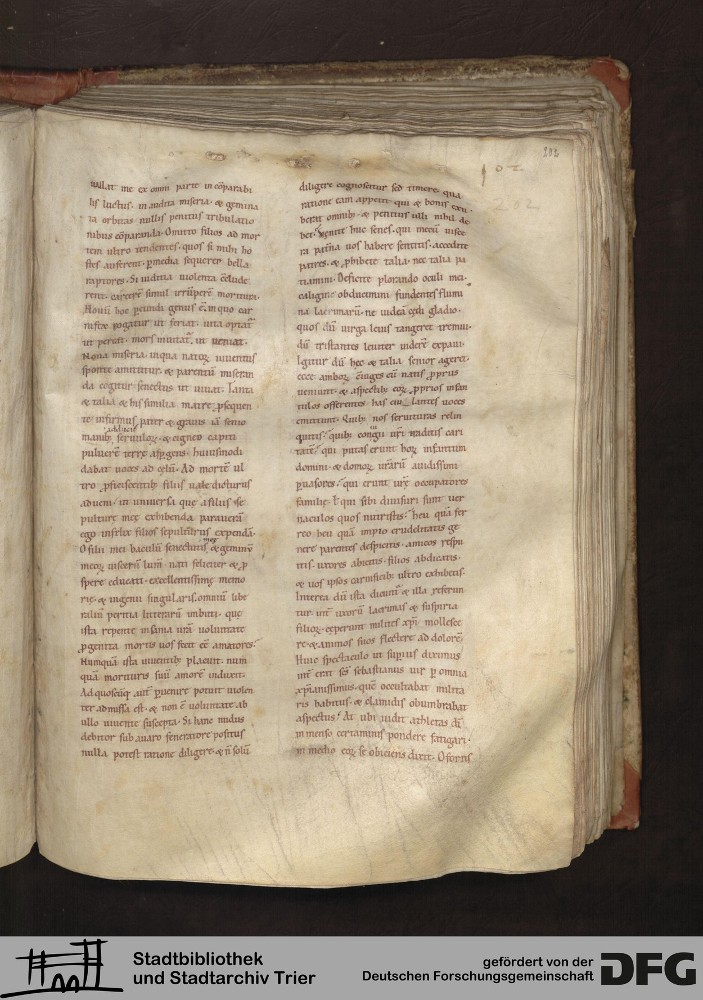 202
102
202
uallat me ex omni parte incōparabi
lis luctus. inaudita miseria. & gemina
ta orbitas nullis penitus tribulatio
nibus cōparanda. Omitto filios ad mor
tem ultro tendentes. quos si mihi ho
stes auferent. p media sequerer bella
raptores. Si iuditia uiolenta cclude
rent. carcerē simul irrūperē moritura.
Nouū hoc pereundi genus ē. in quo car
nifex rogatur ut feriat. uita optat
ut pereat. mors inuitat ut ueniat.
Noua miseria. in qua natoꝝ iuuentus
sponte amittitur. & parentū miseran
da cogitur senectus ut uiuat. Tanta
& talia & his similia matre psequen
te infirmus pater & grauis iā senio
adducit
manibꝫ seruuloꝝ. & cigneo capiti
puluerē terre aspgens. huiusmodi
dabat uoces ad celū. Ad mortē ul
tro pficiscentibꝫ filiis uale dicturus
adueni. ut uniuersa que a filiis se
pulture meę exhibenda paraueram
ego infelix filiis sepulturus expendā.
O filii mei baculū senectutis meę & geminū
meoꝝ uiscerū lumen. nati feliciter & p
spere educati. excellentissime memo
rie. & ingenii singularis. omniū libe
raliū peritia litterarū imbuti. que
ista repente insania uram uoluntate
pgenita mortis uos fecit eē amatores.
Numquā ista uiuentibꝫ placuit. num
quā morituris suū amorē induxit.
Ad quoscūq aut puenire potuit uiolen
ter admissa est. & non ē uoluntate ab
ullo uiuente suscepta. Si hanc nudus
debitor sub auaro feneratore positus
nulla potest ratione diligere. & n solū
diligere cognoscitur sed timere. qua
ratione eam appetit qui & bonis exu
berat omnibꝫ. & penitus ulli nihil de
bet. Venite huc senes. qui mecū uisce
ra patna uos habere sentitis. accedite
patres. & phibete talia. nec talia pa
tiamini. Deficite plorando oculi mei.
caligine obducemini fundentes flumi
na lacrimarū. ne uideā cedi gladio.
quos dū uirga leuis tangeret tremui.
dū tristantes leuiter uiderē expaui.
Igitur dū hec & talia senior ageret.
ecce amboꝝ ciuges cū natis ppriis
ueniunt. & aspectibꝫ eoꝝ pprios infan
tulos offerentes has eiulantes uoces
emittunt. Quibꝫ nos seruituras relin
quitis. quibꝫ coniugii nri traditis cari
tatē. qui putas erunt hoꝝ infantum
domini. & domoꝝ urarū auidissimi
puasores. qui erunt urę occupatores
familię. l qui sibi diuisuri sunt uer
naculos quos nutristis. heu qua fer
reo. heu qua impio crudelitatis ge
nere parentes despicitis. amicos respu
itis. uxores abicitis. filios abdicatis.
& uos ipsos carnificibꝫ ultro exhibetis.
Interea dū ista dicunt & illa referun
tur. int uxorū lacrimas & suspiria
filioꝝ. ceperunt milites xpi mollesce
re. & animos suos flectere ad dolorē.
Huic spectaculo ut supius diximus
int erat scs sebastianus uir p omnia
xpianissimus. quē occultabat milita
ris habitus. & clamidis obumbrabat
aspectus. At ubi uidit athletas di
inmenso certaminis pondere fatigari.
in medio eoꝝ se obiciens dixit. O fortis
Stadtbibliothek
und Stadtarchiv Trier
gefördert von der
Deutschen Forschungsgemeinschaft
DFG